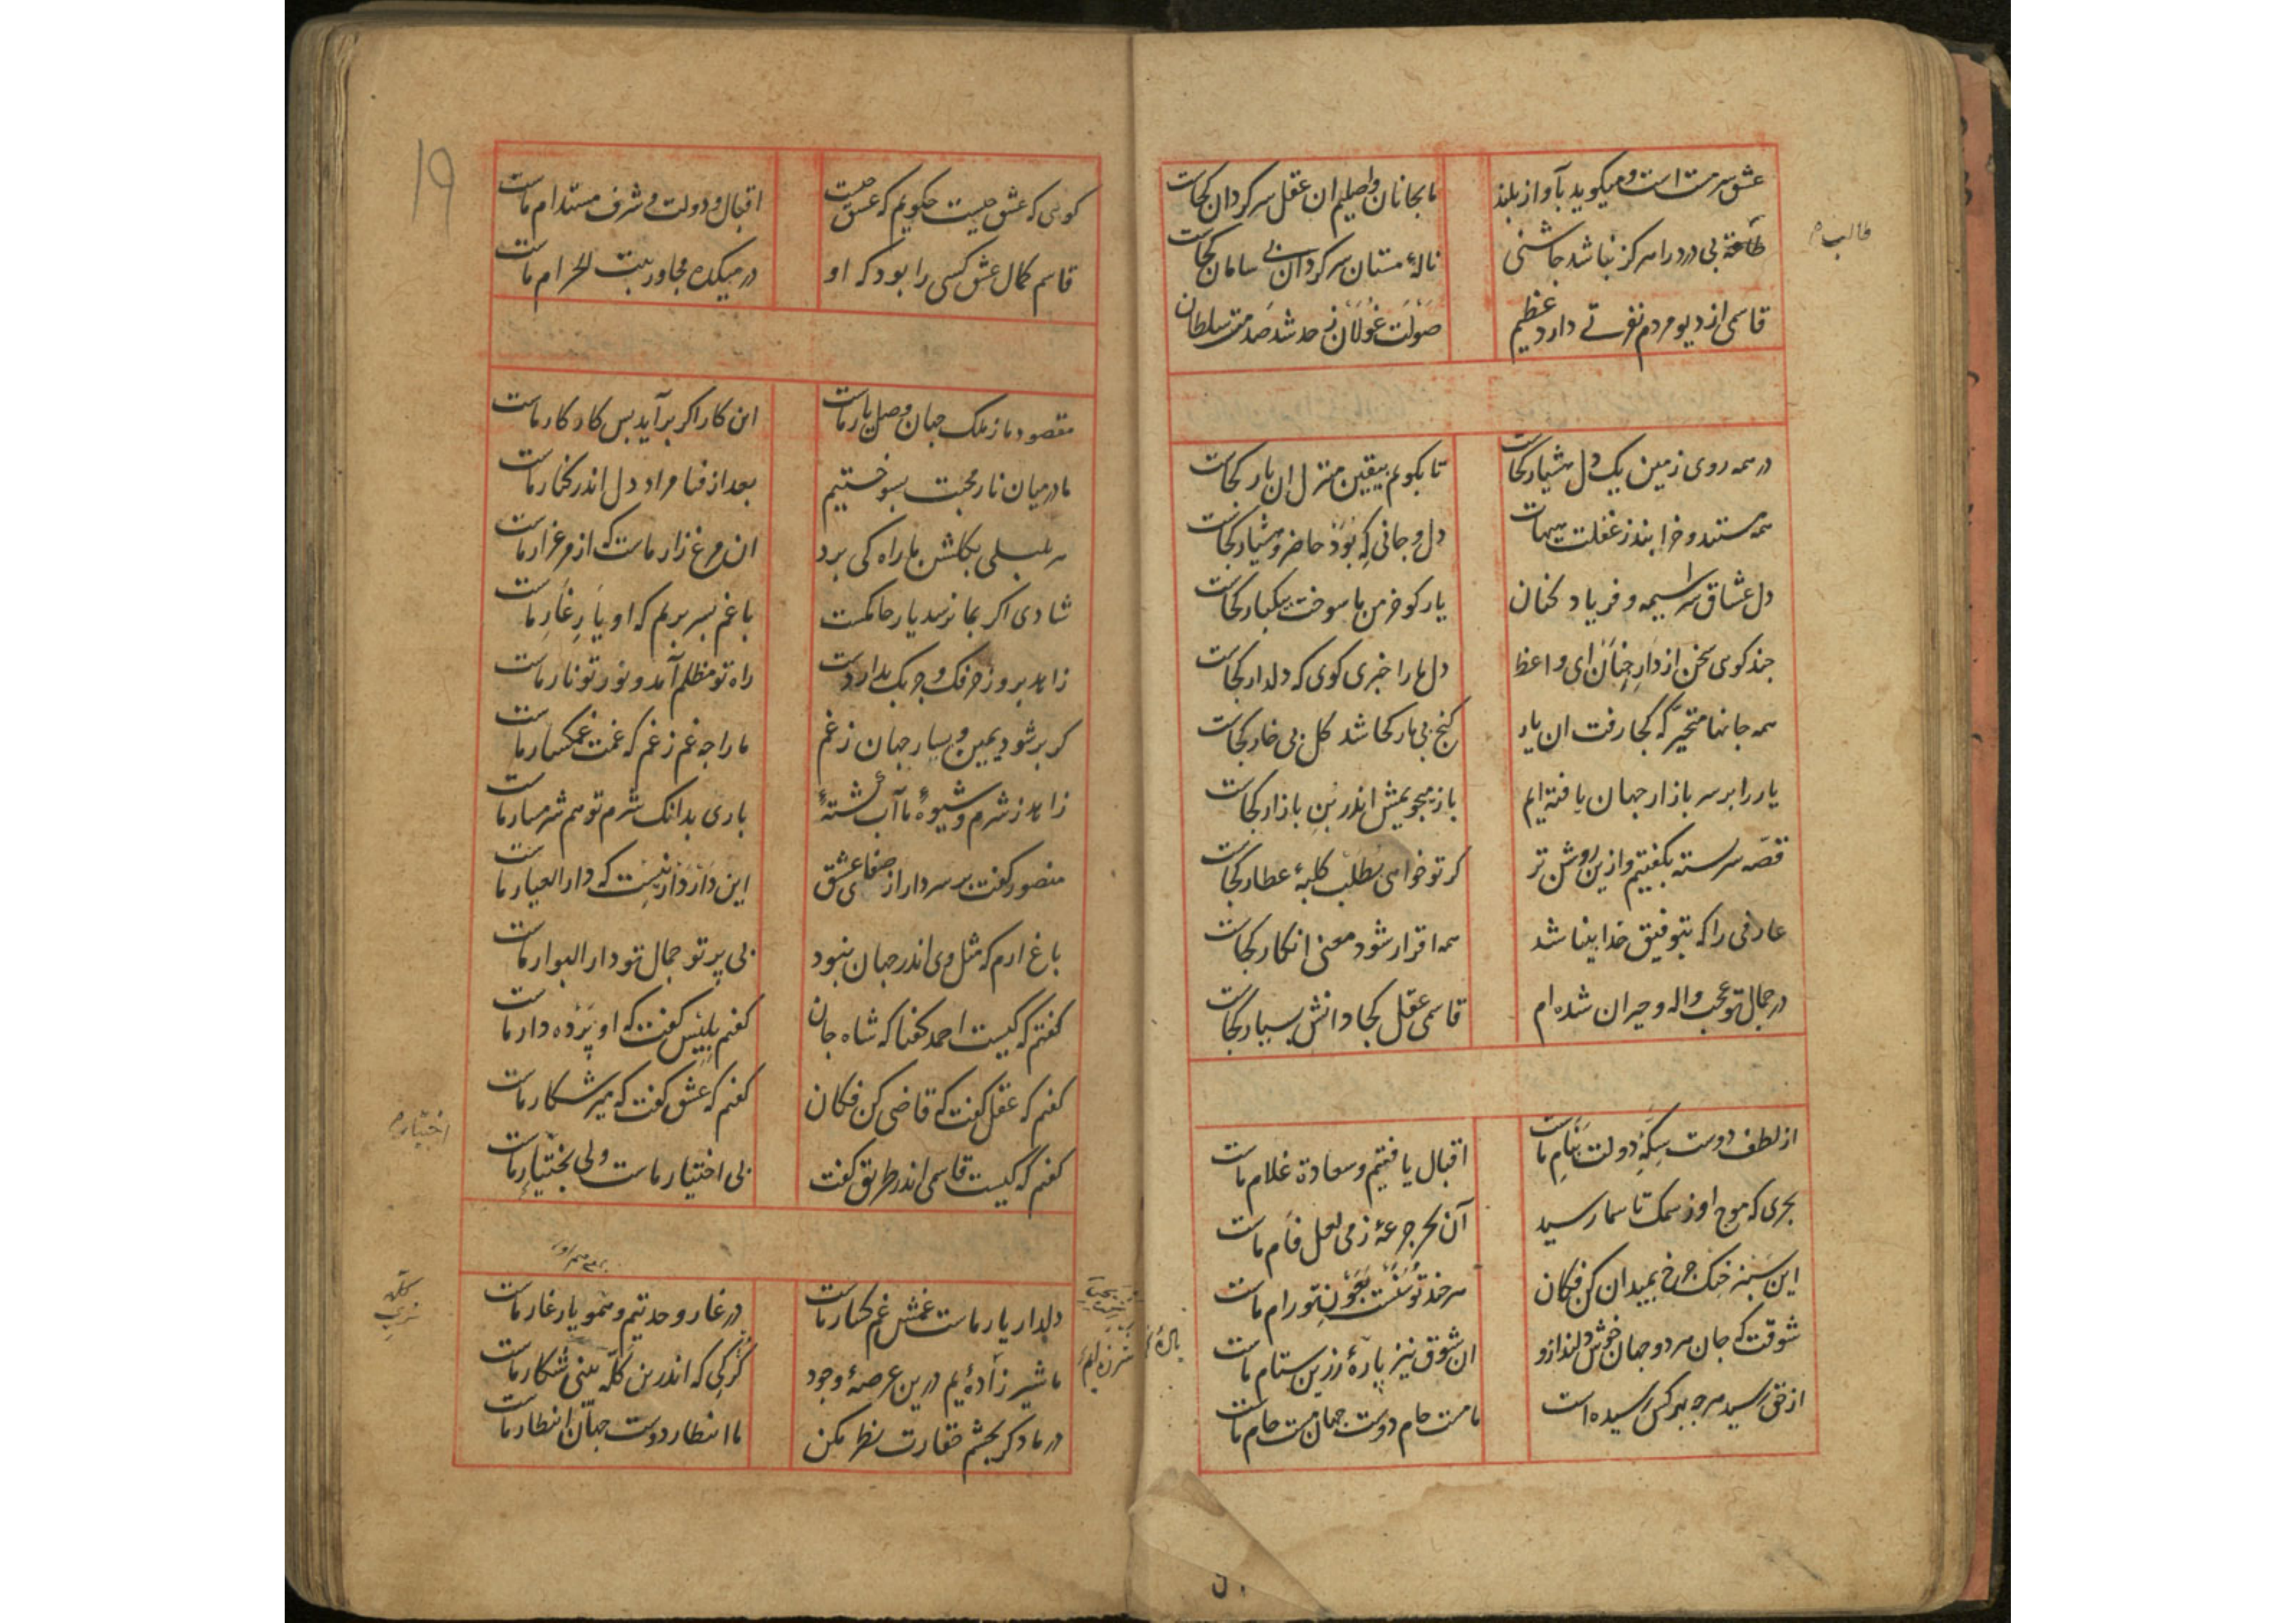 عشق سرمست است و میکوید بآواز بلند ما بجانان واصلیم ان عقل سرکردان کجاست
طاعة بی درد را هرکز نباشد چاشنی نالهٔ مستان سرکردان بی سامان کجاست
قاسمی از دیو مردم نفرتی دارد عظیم صولت غولان ز حد شد صدمت سلطان
طالب م
در همه روی زمین یک دل هشیار کجاست تا بکویم بیقین منزل ان یار کجاست
همه مستند و خرابند ز غفلت هیهات دل و جانی که بود حاضر و هشیار کجاست
دل عشاق سراسیمه و فریاد کنان یار کو خرمن ما سوخت بیکبار کجاست
چند کوی سخن از دار جنان ای واعظ دل ما را خبری کوی که دلدار کجاست
همه جانها متحیر که کجا رفت ان یار کنج بی مار کجا شد کل بی خار کجاست
یار را بر سر بازار جهان یافته ایم باز میجویمش اندر بن بازار کجاست
قصه سربسته بکفتیم و ازین روشن تر کر تو خواهی بطلب کلبهٔ عطار کجاست
عارفی را که بتوفیق خدا بینا شد همه اقرار شود معنی انکار کجاست
در جمال تو عجب واله و حیران شده ام قاسمی عقل کجا دانش بسیار کجاست
از لطف دوست سکهٔ دولت بنام ماست اقبال یافتیم و سعادة غلام ماست
بحری که موج او ز سمک تا سما رسید آن بحر جرعهٔ ز می لعل فام ماست
این سبز خنک چرخ بمیدان کن فکان هرچند توسنست بعون تو رام ماست
شوقت که جان هر دو جهان خوش دلند ازو ان شوق نیز پارهٔ زرین ستام ماست
از حق رسید هرچه بهر کس رسیده است ما مست جام دوست جهان مست جام ماست
کوی که عشق چیست چکویم که عشق چیست اقبال و دولت و شرف مستدام ماست
قاسم کمال عشق کسی را بود که او در میکده مجاور بیت الحرام ماست
19
مقصود ما ز ملک جهان وصل یار ماست این کار اکر برآید بس کار کار ماست
ما در میان نار محبت بسوختیم بعد از فنا مراد دل اندر کنار ماست
هر بلبلی بکلشن ما راه کی برد ان مرغ زار ماست که از مرغزار ماست
شادی اکر بما نرسد یار حاکمست با غم بسر بریم که او یار غار ماست
زاهد بروز حرفک و چربک بدار دست راه تو مظلم آمد و نور تو نار ماست
کر بر شود یمین و یسار جهان ز غم ما را چه غم ز غم که غمت غمکسار ماست
زاهد ز شرم و شیوهٔ ما آب شستهٔ باری بدانک شرم تو هم شرمسار ماست
منصور کفت بر سر دار از صفای عشق این دار دار نیست که دار العیار ماست
باغ ارم که مثل وی اندر جهان نبود بی پرتو جمال تو دار البوار ماست
کفتم که کیست احمد کفتا که شاه جان کفتم بلیس کفت که او پرده دار ماست
کفتم که عقل کفت که قاضی کن فکان کفتم که عشق کفت که میر شکار ماست
کفتم که کیست قاسمی اندر طریق کفت بی اختیار ماست ولی بختیار ماست
اختیار م
دلدار یار ماست غمش غمکسار ماست در غار وحدتیم و همو یار غار ماست
ما شیر زادهٔ یم درین عرصهٔ وجود کرکی که اندرین کله بینی شکار ماست
در ما دکر بچشم حقارت نظر مکن ما انتظار دوست جهان انتظار ماست